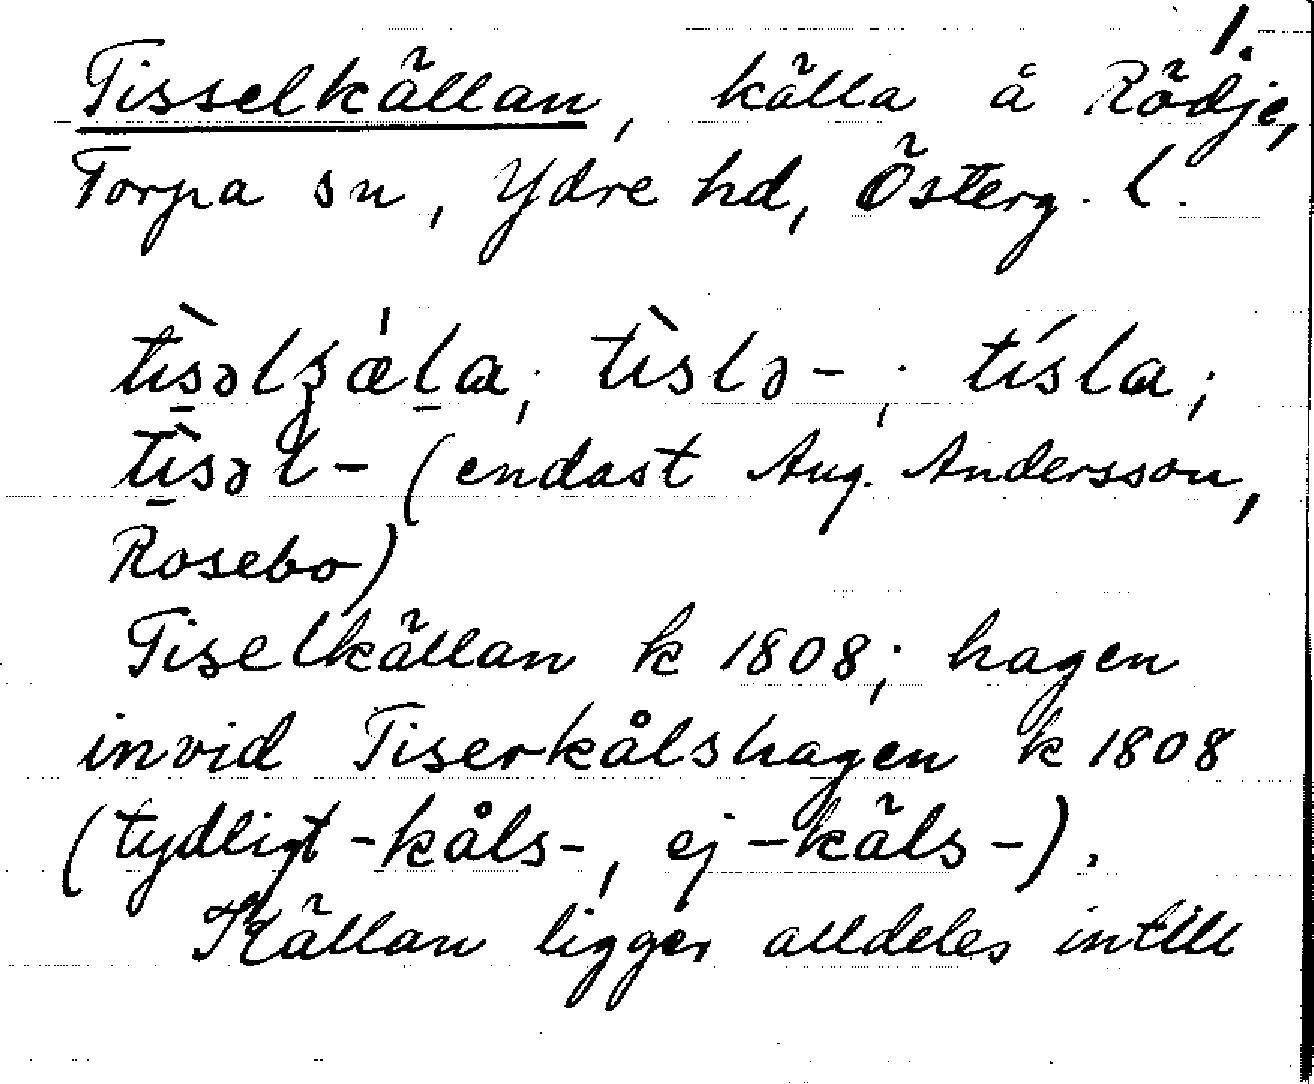 1.
Tisselkällan, källa å Rödje,
Torpa sn, Ydre hd, Österg. l.
tìsəlʒǽla; tìslə- ; tísla;
tìsəl- (endast Aug. Andersson,
Rosebo)
Tiselkällan k 1808; hagen
invid Tiserkålshagen k 1808
(tydligt -kåls-, ej -käls-).
Källan ligger alldeles intill